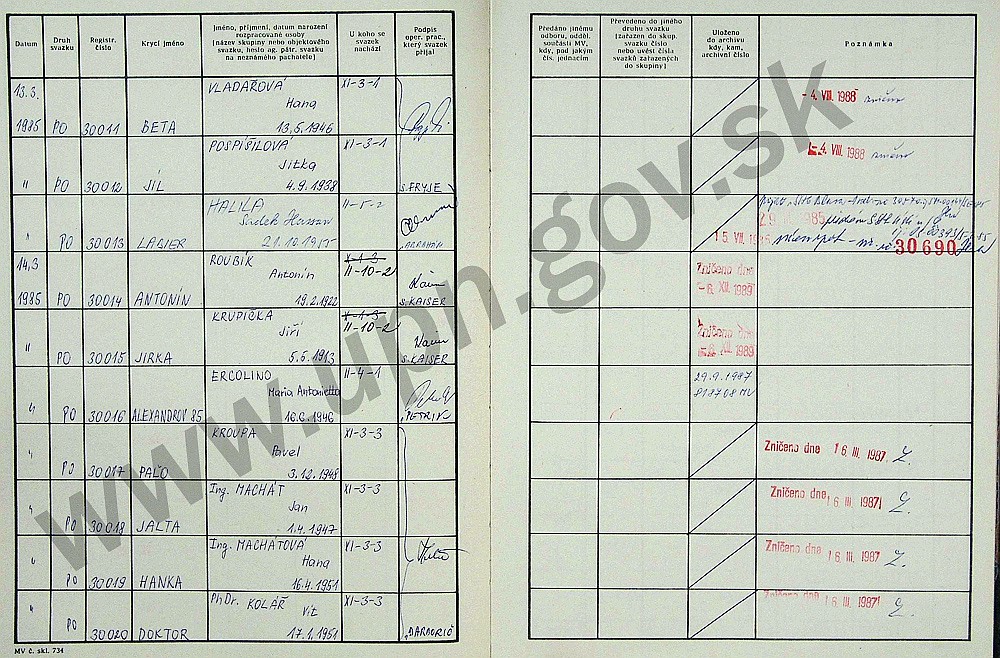 Datum
Druh
svazku
Registr.
číslo
Krycí jméno
Jméno, příjmení, datum narození
rozpracované osoby
(název skupiny nebo objektového
svazku, heslo ag. pátr. svazku
na neznámého pachatele)
U koho se
svazek
nachází
Podpis
oper. prac.,
který svazek
přijal
Předáno jinému
odboru, odděl.
součásti MV,
kdy, pod jakým
čís. jednacím
Převedeno do jiného
druhu svazku
(zařazen do skup.
svazku číslo
nebo uvést čísla
svazků zařazených
do skupiny)
Uloženo
do archivu
kdy, kam,
archivní číslo
Poznámka
13.3. VLADAŘOVÁ XI-3-1
Hana - 4. VIII. 1988 zničeno
1985 PO 30011 BETA 13.5.1946
POSPÍŠILOVÁ XI-3-1
Jitka - 4. VIII. 1988 zničeno
" PO 30012 JÍL 4.9.1938 s. FRYŠE
HALILA II-5-2
Sadek Hassan
" PO 30013 21.10.1955 ABRAHÁM 30690
14.3 ROUBÍK X-1-3
Antonín II-10-2 Zničeno dne
1985 PO 30014 ANTONÍN 19.2.1922 s. KAISER XII. 1989
KRUPIČKA X-1-3
Jiří II-10-2 Zničeno dne
" PO 30015 JIRKA 5.5.1913 s. KAISER XII. 1989
ERCOLINO II-4-1 29.9.1987
Maria Antonietta 818708 MV
" PO 30016 ALEXANDROV 85 16.6.1946
KROUPA XI-3-3
Pavel Zničeno dne 16. III. 1987
" PO 30017 PAĽO 3.12.1948
Ing. MACHÁT XI-3-3
Jan Zničeno dne 16. III. 1987
" PO 30018 JALTA 1.4.1947
Ing. MACHÁTOVÁ XI-3-3
Hana Zničeno dne 16. III. 1987
" PO 30019 HANKA 16.4.1951
PhDr. KOLÁŘ XI-3-3
Vít Zničeno dne 16. III. 1987
" PO 30020 DOKTOR 17.1.1951
MV č. skl. 734
www.upn.gov.sk